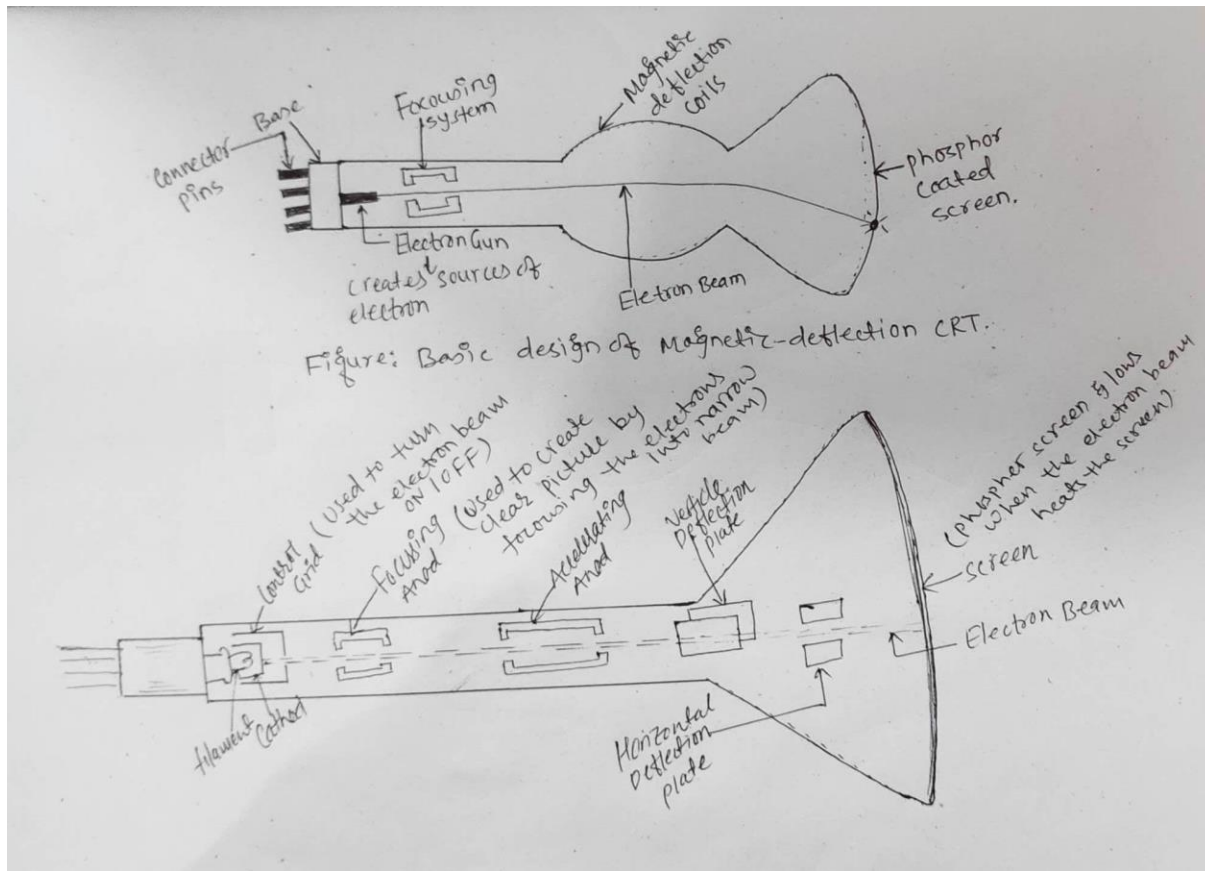 Connector
pins
Base
Focousing
system
Magnetic
deflection
coils
phosphor
coated
screen.
Electron Gun
creates sources of
electron
Eletron Beam
Figure: Basic design of Magnetic-deflection CRT.
Control
Grid (used to turn
the electron beam
ON/OFF)
Focussing
Anod
(used to create
clear picture by
focousing the electrons
into narrow
beam)
Accelerating
Anod
Verticle
Deflection
Plate
(phospher screen glows
when the electron beam
heats the screen)
screen
Electron Beam
Horizontal
Deflection
plate
filament
Cathod